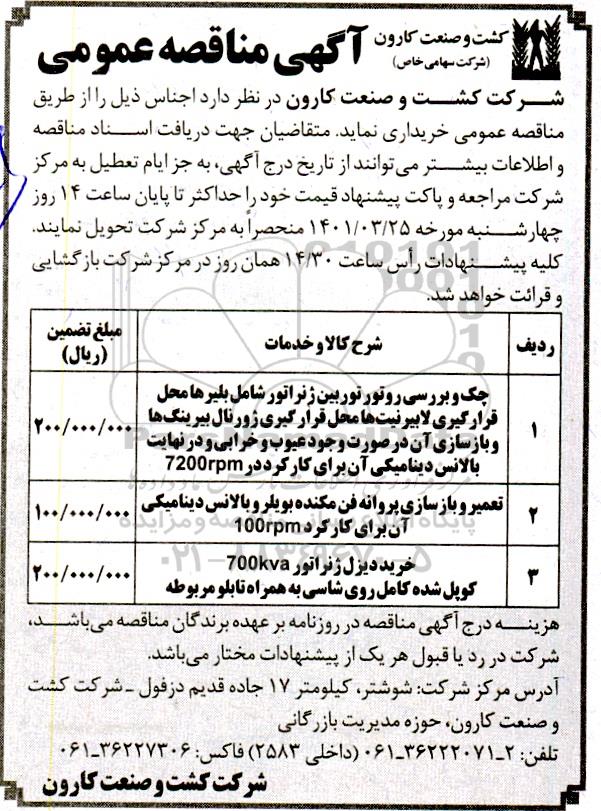 کشت و صنعت کارون
(شرکت سهامی خاص)
آگهی مناقصه عمومی
شرکت کشت و صنعت کارون در نظر دارد اجناس ذیل را از طریق
مناقصه عمومی خریداری نماید. متقاضیان جهت دریافت اسناد مناقصه
و اطلاعات بیشتر می‌توانند از تاریخ درج آگهی، به جز ایام تعطیل به مرکز
شرکت مراجعه و پاکت پیشنهاد قیمت خود را حداکثر تا پایان ساعت ۱۴ روز
چهارشنبه مورخه ۱۴۰۱/۰۳/۲۵ منحصراً به مرکز شرکت تحویل نمایند.
کلیه پیشنهادات رأس ساعت ۱۴/۳۰ همان روز در مرکز شرکت بازگشایی
و قرائت خواهد شد.
ردیف
شرح کالا و خدمات
مبلغ تضمین
(ریال)
۱
چک و بررسی روتور توربین ژنراتور شامل بلیرها محل
قرارگیری لابیرنیت‌ها محل قرارگیری ژورنال بیرینگ‌ها
و بازسازی آن در صورت وجود عیوب و خرابی و در نهایت
بالانس دینامیکی آن برای کارکرد در 7200rpm
۲۰۰/۰۰۰/۰۰۰
۲
تعمیر و بازسازی پروانه فن مکنده بویلر و بالانس دینامیکی
آن برای کارکرد 100rpm
۱۰۰/۰۰۰/۰۰۰
۳
خرید دیزل ژنراتور 700kva
کوپل شده کامل روی شاسی به همراه تابلو مربوطه
۲۰۰/۰۰۰/۰۰۰
هزینه درج آگهی مناقصه در روزنامه بر عهده برندگان مناقصه می‌باشد،
شرکت در رد یا قبول هر یک از پیشنهادات مختار می‌باشد.
آدرس مرکز شرکت: شوشتر، کیلومتر ۱۷ جاده قدیم دزفول - شرکت کشت
و صنعت کارون، حوزه مدیریت بازرگانی
تلفن: ۲-۳۶۲۲۲۰۷۱-۰۶۱ (داخلی ۲۵۸۳) فاکس: ۳۶۲۲۷۳۰۶-۰۶۱
شرکت کشت و صنعت کارون
۰۲۱-۸۸۳۴۹۶۷۰-۵